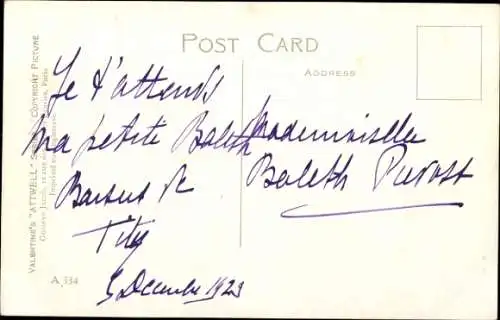 POST CARD
ADDRESS
VALENTINE'S "ATTWELL" SERIES COPYRIGHT PICTURE
A 534
Je t'attends
ma petite Baleth
Baisers de
Tity
5 Decembre 1923
Mademoiselle
Baleth